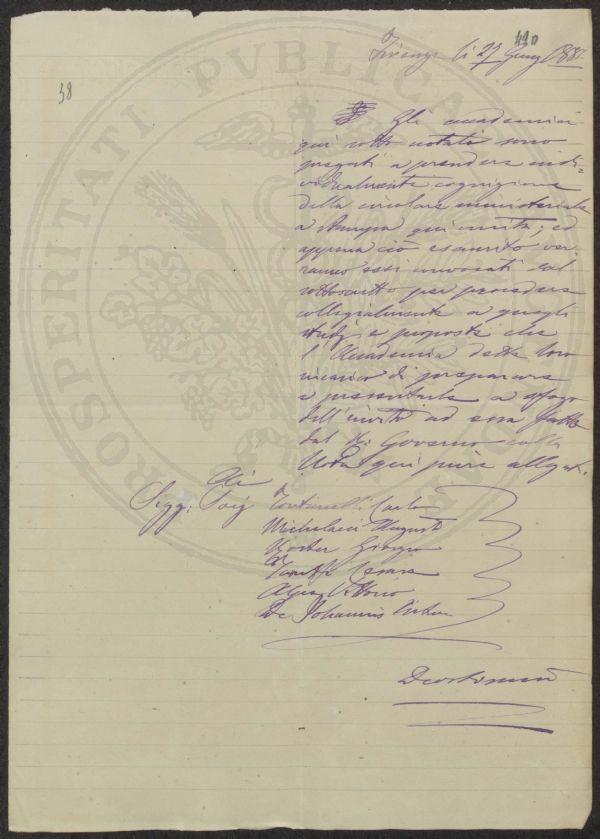 440
38
Firenze li 27 Giug
Gli accademici
qui sotto notati sono
pregati a prendere indi=
vidualmente cognizione
della circolare ministeriale
a stampa qui unita; ed
appena ciò esaurito ver
ranno essi convocati dal
sottoscritto per procedere
collegialmente a quegli
studj e proposte che
l'Accademia dette loro
incarico di preparare
e presentarle a sfogo
dell'invito ad essa fatto
dal R. Governo colla
Nota qui pure allegat.
Sigg.
Carlo
Michelacci Augusto
Roster Giorgio
Cesare
Vittorio
De Johannis
PROSPERITATI PUBLICAE